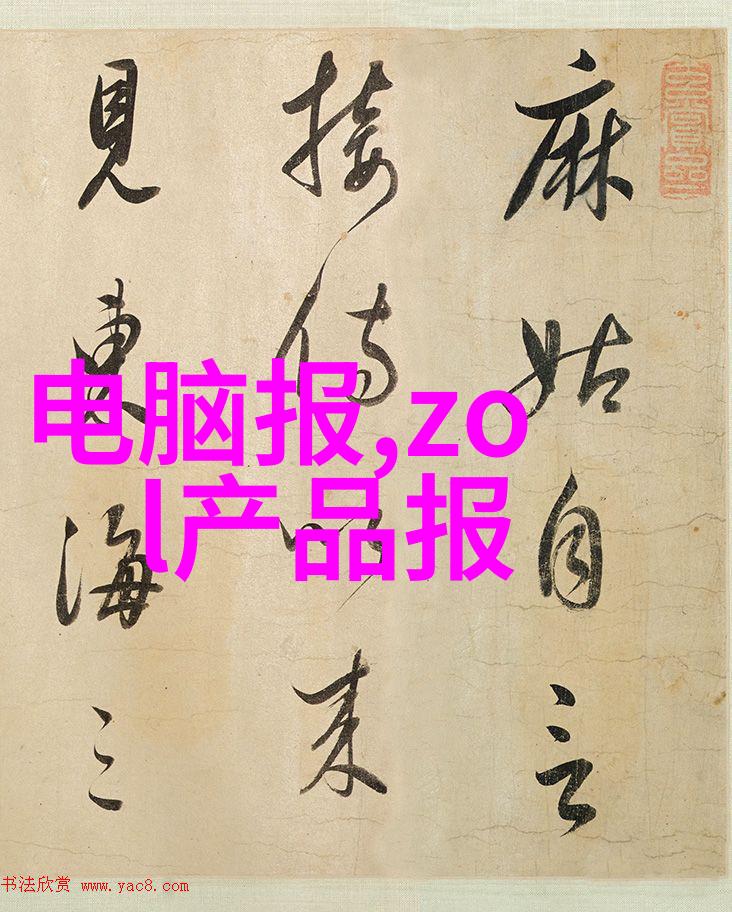 麻姑自言
接侍以来
見東海三
电脑报,zo
l产品报
书法欣赏 www.yac8.com